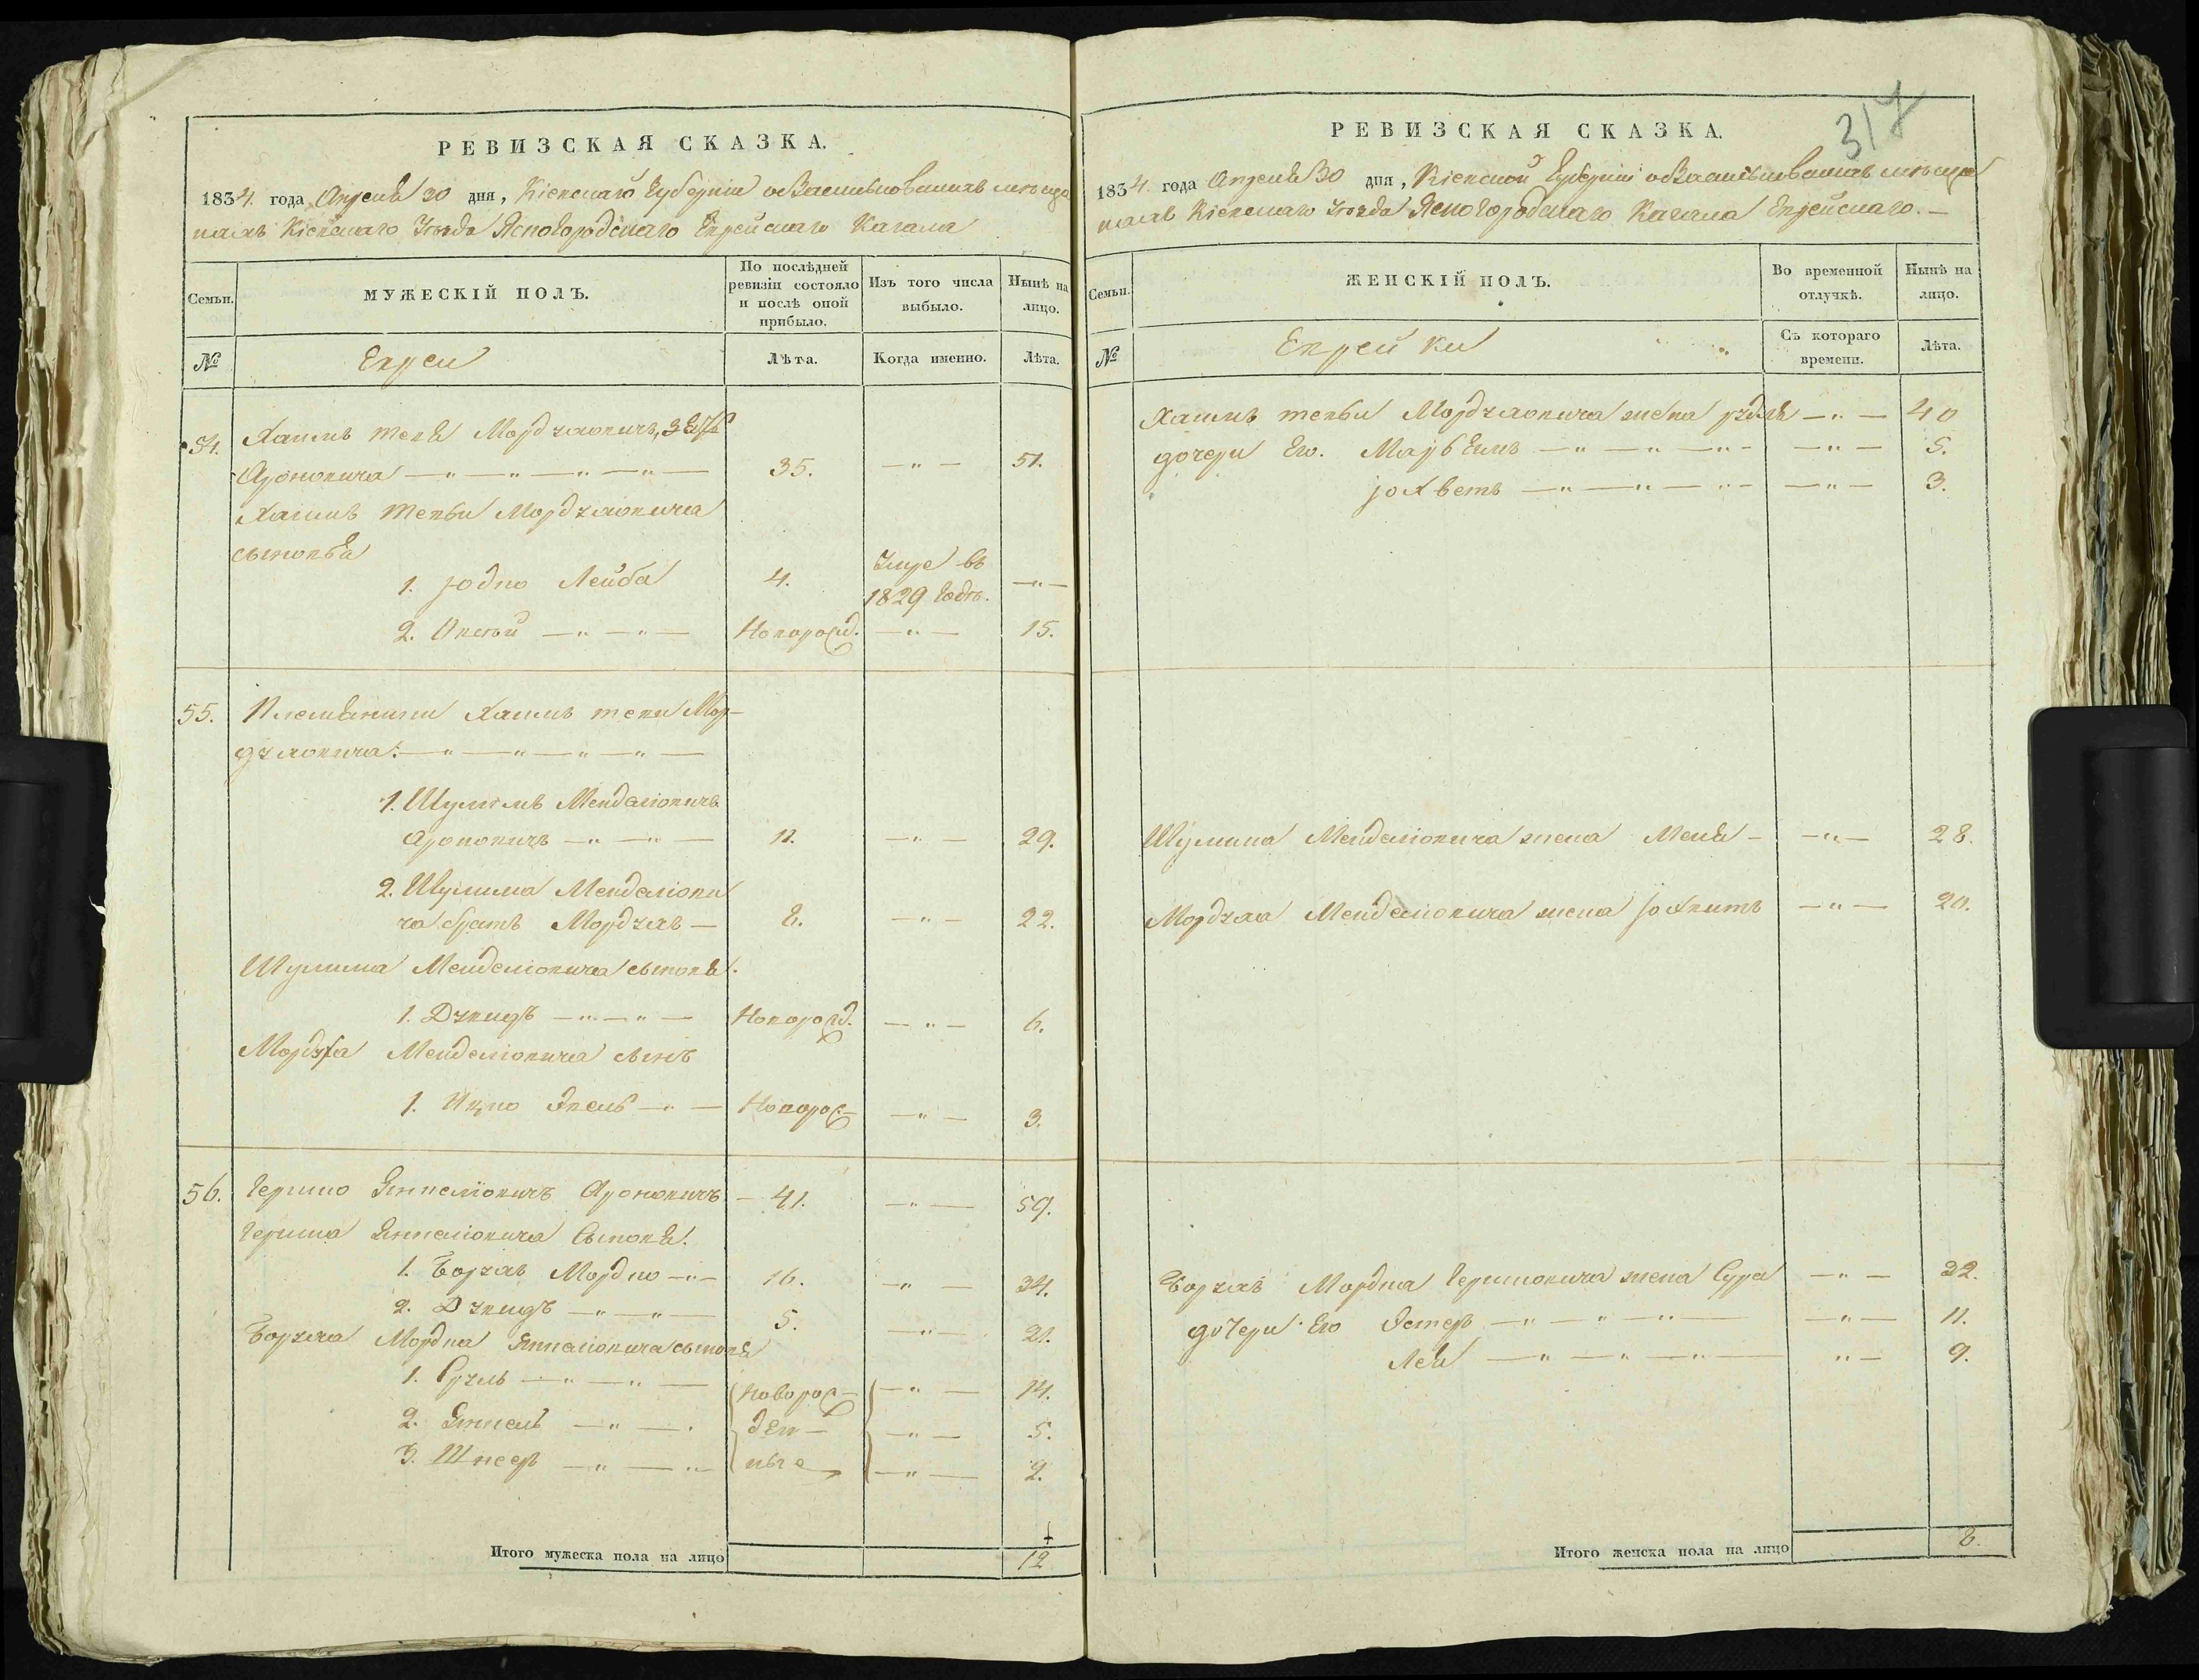 РЕВИЗСКАЯ СКАЗКА.
1834. года Апреля 30 дня, Кіевской Губерніи о состоящихъ мѣща
нахъ Кіевскаго Уѣзда Ясногородскаго Еврейскаго Кагала
Семьи.
МУЖЕСКІЙ ПОЛЪ.
По послѣдней ревизіи состояло и послѣ оной прибыло.
Изъ того числа выбыло.
Нынѣ на лицо.
№
Евреи
Лѣта.
Когда именно.
Лѣта.
54. Хаимъ Мордуховичъ,
Ароновича — " — " — " — " — 35. — " — 51.
Хаимъ Мордуховича
сыновья
1. Юдко Лейба 4. Умре въ 1829 годѣ. — " —
2. Овсѣй — " — " — Новорожд. — " — 15.
55. Племянники Хаимъ Мор-
духовича: — " — " — " — " —
1. Шулимъ Менделіовичъ
Ароновичъ — " — " — 11. — " — 29.
2. Шулима Менделіови
ча братъ Мордухъ — 8. — " — 22.
Шулима Менделіовича сыновья.
1. Дувидъ — " — " — Новорожд. — " — 6.
Мордуха Менделіовича сынъ
1. Ицко — " — Новорож — " — 3.
56. Гершко Янкеліовичъ Ароновичъ — 41. — " — 59.
Гершка Янкеліовича Сыновья.
1. Борухъ Мордко — " — 16. — " — 34.
2. Дувидъ — " — " — 5. — " — 21.
Боруха Мордка сыновья
1. Сруль — " — " — Новорож — " — 14.
2. Янкель — " — ден — — " — 5.
3. — " — " ные — " — 2.
Итого мужеска пола на лицо 12
317
РЕВИЗСКАЯ СКАЗКА.
1834. года Апреля 30 дня, Кіевской Губерніи о состоящихъ мѣща
нахъ Кіевскаго Уѣзда Ясногородскаго Кагала Еврейскаго. —
Семьи.
ЖЕНСКІЙ ПОЛЪ.
Во временной отлучкѣ.
Нынѣ на лицо.
№
Еврейки
Съ котораго времени.
Лѣта.
Хаимъ Мордуховича жена — " — 40
дочери Его. — " — " — " — — " — 5.
— " — " — " — — " — 3.
Шулима Менделіовича жена — — " — 28.
Мордуха Менделіовича жена — " — 20.
Борухъ Мордка Гершковича жена Сура — " — 32.
дочери Его Эстеръ — " — " — " — — " — 11.
Лея — " — " — " — " — 9.
Итого женска пола на лицо 8.